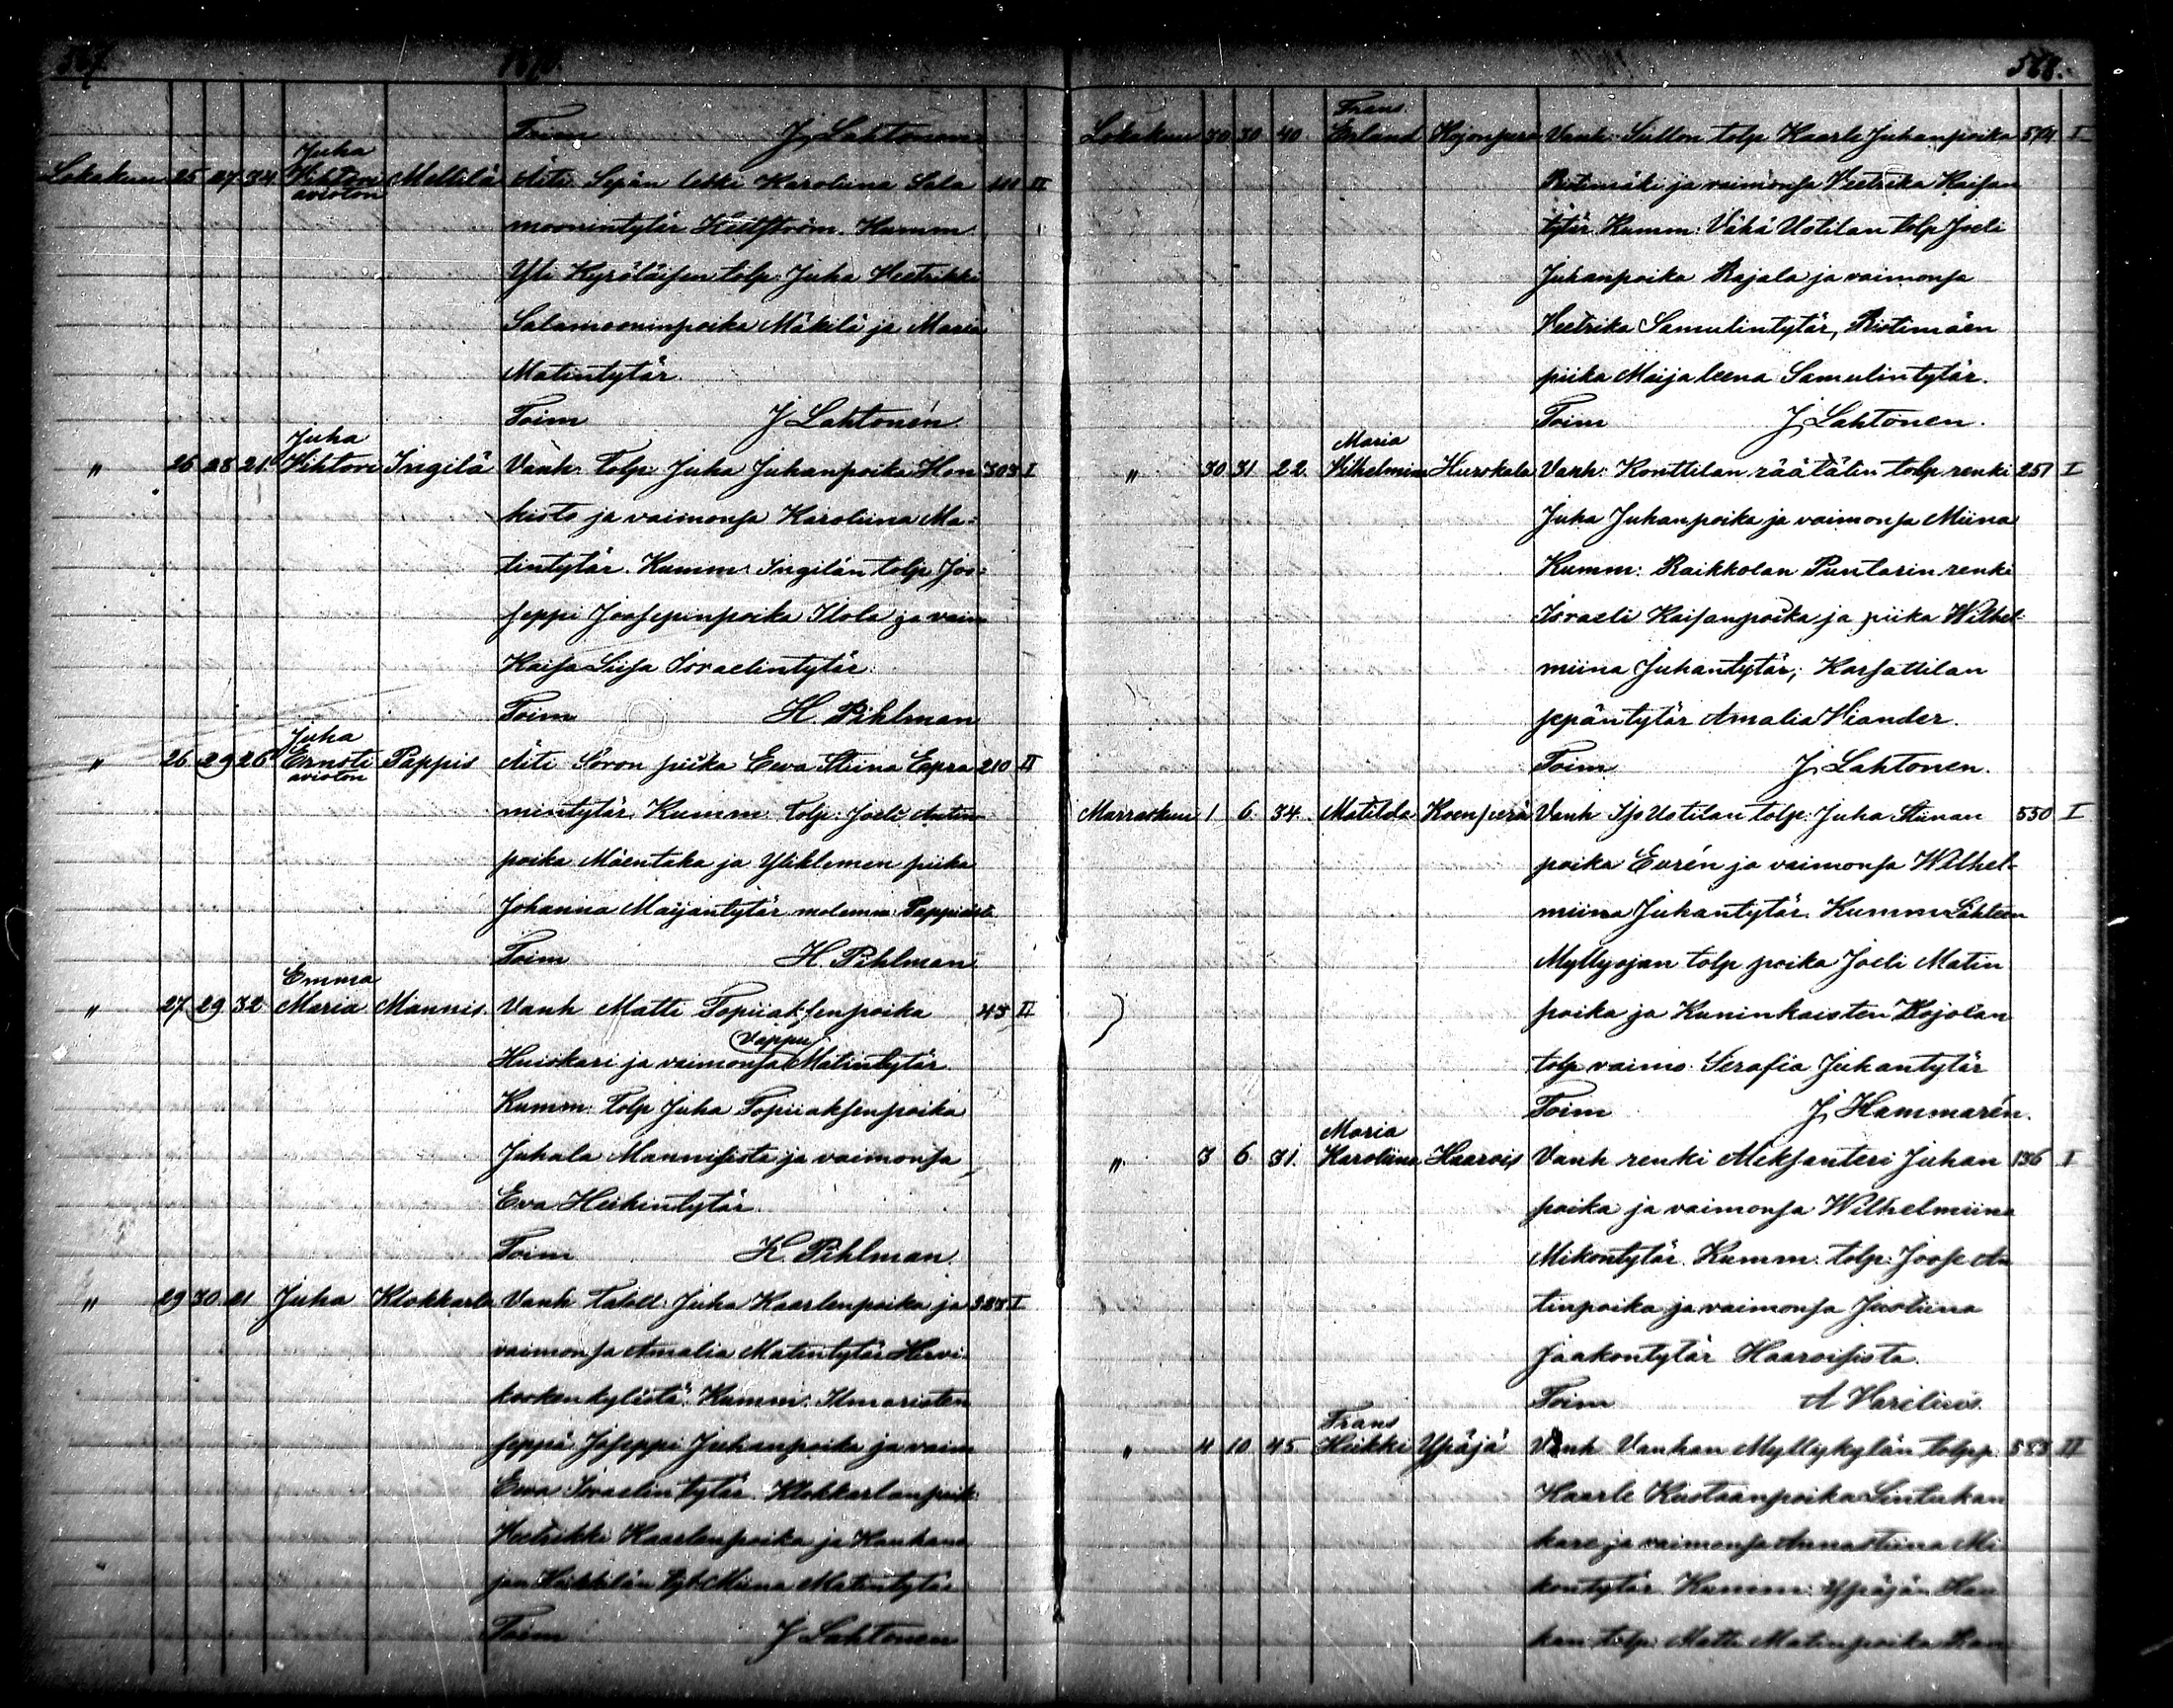 567. 1870.
Toim J. Lahtonen
Juha
Lokakuu 25 27 34 Wihtori Mellilä Äiti Sepän leski Karoliina Sala 411 II
avioton
moonintytär Kellström. Kumm
Yli Kyröläisen tolp. Juha Heetrikki
Salamooninpoika Mäkilä ja Maria
Matintytär
Toim J. Lahtonen
Juha
" 26 28 21 Wihtori Ingilä Vanh. tolp. Juha Juhanpoika Hon 303 I
kisto ja vaimonsa Karoliina Ma-
tintytär. Kumm: Ingilän tolp. Joo-
seppi Joosepinpoika Ilola ja vaim
Kaisa Liisa Israelintytär
Toim H. Pihlman
Juha
" 26 29 26 Ernsti Pappis Äiti Soron piika Eeva Stiina Epra 210 II
avioton
mintytär. Kumm: tolp: Joeli Antin
poika Mäentaka ja Yliklemen piika
Johanna Maijantytär molemm: Pappisista
Toim H. Pihlman
Emma
" 27 29 32 Maria Mannis. Vanh Matti Topiiaksenpoika 43 II
Vappu
Huiskari ja vaimonsa Matintytär
Kumm: tolp Juha Topiiaksenpoika
Juhala Mannisista ja vaimonsa
Eva Heikintytär
Toim H. Pihlman.
" 29 30 21 Juha Klokkarla Vanh Taloll: Juha Kaarlenpoika ja 328 I
vaimonsa Amalia Matintytär Hirvi
kosken kylästä. Kumm: Ilmaristen
seppä Joseppi Juhanpoika ja vaim
Eeva Israelintytär. Klokkarlan poik
Heetrikki Kaarlenpoika ja Kauhano
jan Heikkilän tyt. Miina Matintytär
Toim J. Lahtonen
568.
Frans
Lokakuu 30 30 40 Erland Kojonperä Vanh: Sullon tolp Kaarle Juhanpoika 571 I
Ristimäki ja vaimonsa Heetrika Kaisan
tytär. Kumm: Vähä Ustilan tolp Joeli
Juhanpoika Rajala ja vaimonsa
Heetrika Samulintytär, Ristimäen
piika Maija leena Samulintytär.
Toim J. Lahtonen.
Maria
" 30 31 22. Wilhelmina Kurskala Vanh: Konttilan räätälin tolp renki 251 I
Juha Juhanpoika ja vaimonsa Miina
Kumm: Raikkolan Puntarin renki
Israeli Kaisanpoika ja piika Wilhel-
miina Juhantytär, Karsattilan
sepäntytär Amalia Viander.
Toim J. Lahtonen.
Marraskuu 1 6 34. Matilda Koenperä Vanh Iso Ustilan tolp: Juha Stiinan 550 I
poika Evrén ja vaimonsa Wilhel-
miina Juhantytär. Kumm Lähteen
Myllyojan tolp poika Joeli Matin
poika ja Kuninkaisten Kojolan
tolp vaimo Serafia Juhantytär
Toim J. Hammarén.
Maria
" 3 6 31. Karoliina Haarois Vanh renki Aleksanteri Juhan 136 I
poika ja vaimonsa Wilhelmiina
Mikontytär. Kumm: tolp: Joose An
tinpoika ja vaimonsa Justiina
Jaakontytär Haaroisista.
Toim A Varelius.
Frans
" 4 10 45 Heikki Ypäjä Vanh Vanhan Myllykylän tolpp. 583 II
Kaarle Kustaanpoika Lintukan
kare ja vaimonsa Annastiina Mi
kontytär. Kumm: Ypäjän Kau
kan tolp: Matti Matinpoika